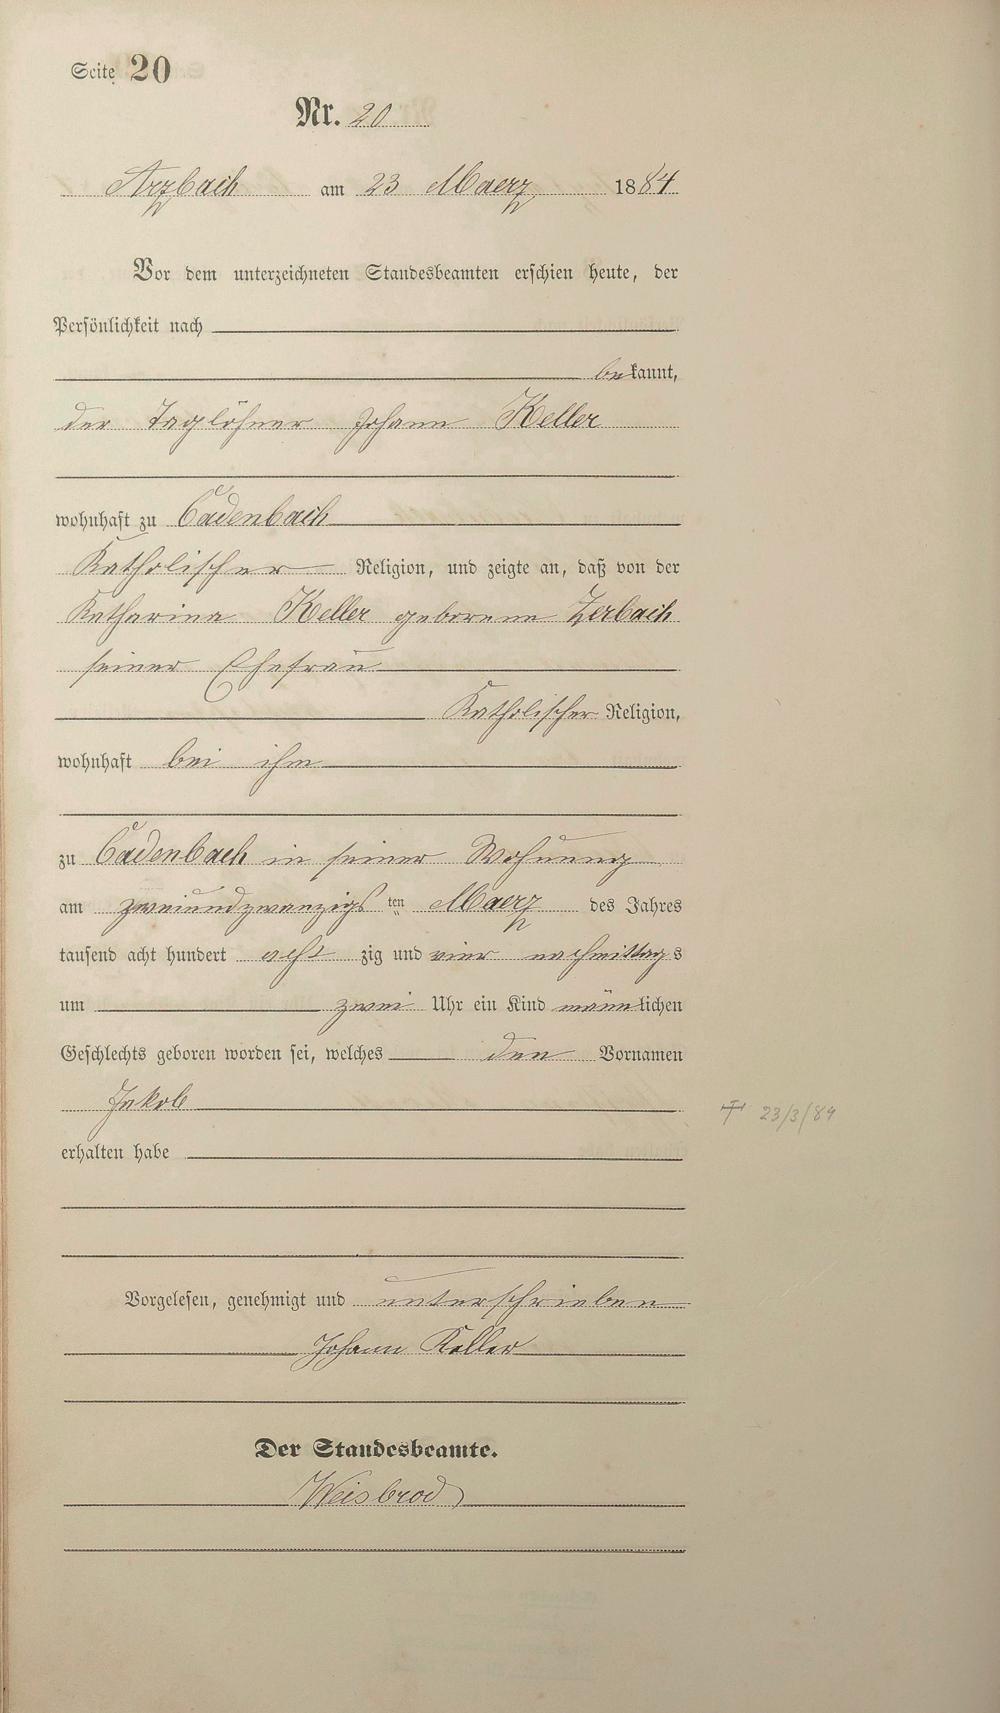 Seite 20
Nr. 20
Arzbach am 23 Maerz 1884
Vor dem unterzeichneten Standesbeamten erschien heute, der
Persönlichkeit nach
bekannt,
der Taglöhner Johann Keller
wohnhaft zu Cadenbach
Katholischer Religion, und zeigte an, daß von der
Katharina Keller geborene Zerbach
seiner Ehefrau
Katholischer Religion,
wohnhaft bei ihm
zu Cadenbach in seiner Wohnung
am zweiundzwanzigsten Maerz des Jahres
tausend acht hundert achtzig und vier nachmittags
um zwei Uhr ein Kind männlichen
Geschlechts geboren worden sei, welches den Vornamen
Jakob
erhalten habe
Vorgelesen, genehmigt und unterschrieben
Johann Keller
Der Standesbeamte.
Weisbrod
† 23/3/84